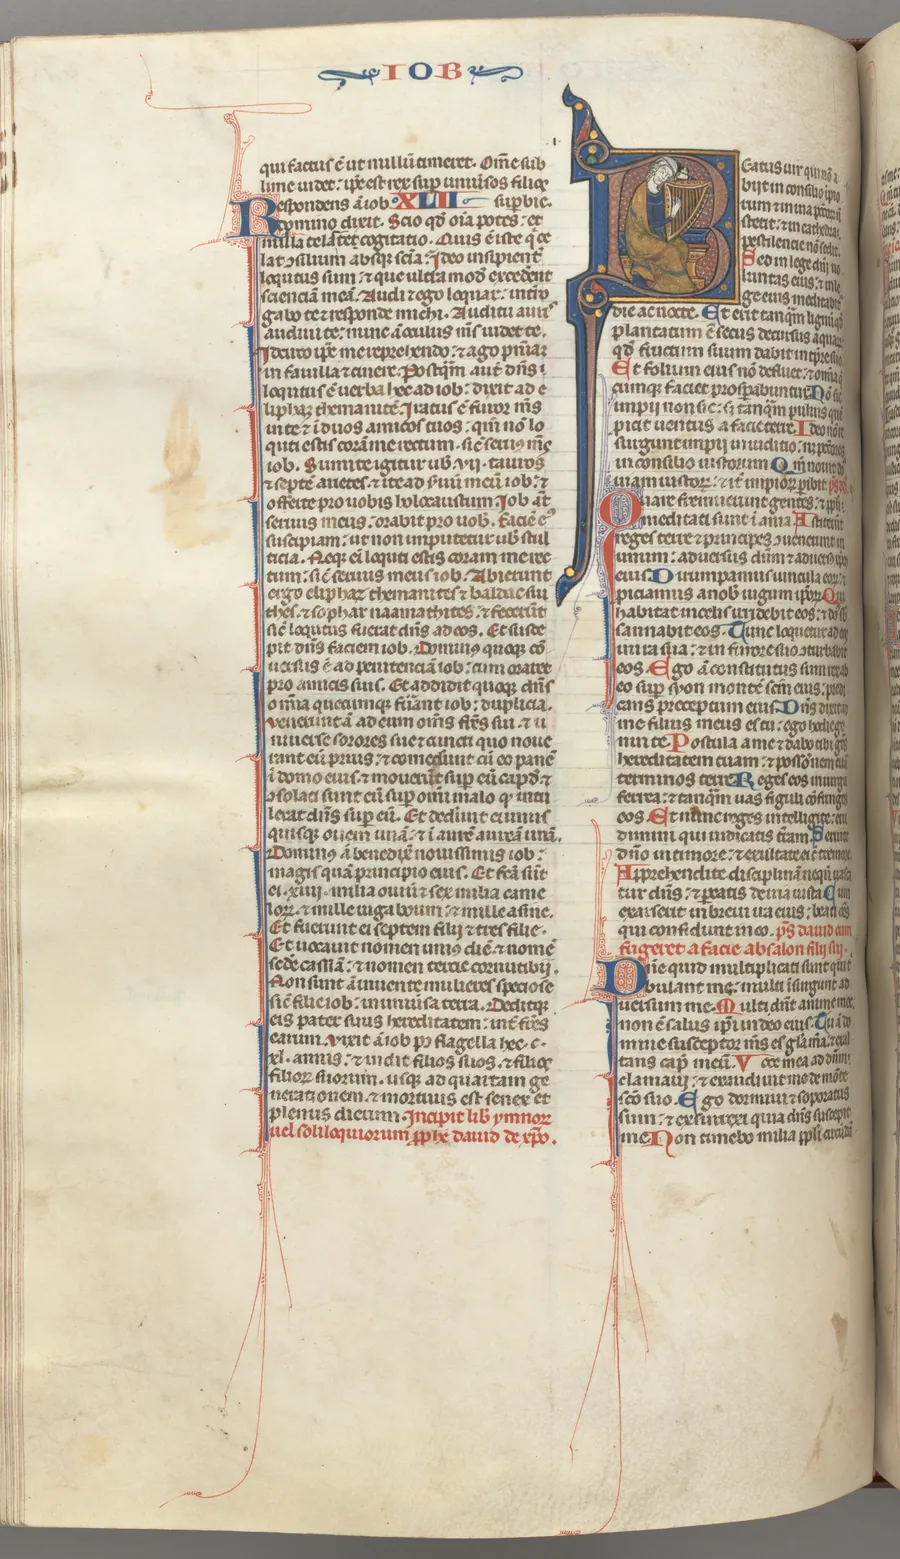 IOB
qui factus ē ut nullū timeret. Om̄e sub
lime uidet: ip̄e est rex sup uniu͛sos filios
Respondens ā iob XLII supbie.
domino dixit. Scio qd̄ oīa potes: et
nulla te latet cogitatio. Quis ē iste q̄ ce
lat ꝯsilium absqꝫ scīa: Ideo insipient͛
locutus sum: ⁊ que ultra mod̄ excedeƀt
scienciam meā. Audi ⁊ ego loquar: int͛ro
gabo te ⁊ responde michi. Auditu auris
audiui te: nunc ā oculus m̄s uidet te.
Idcirco ip̄e me reprehendo: ⁊ ago pnīaꝫ
in fauilla ⁊ cinere. Postqm̄ aut̄ dn̄s
loqutus ē uerba hec ad iob: dixit ad e
liphaꝫ themanitē. Iratus ē furor m̄s
in te ⁊ ī duos amicos tuos: qm̄ nō lo
quti estis corā me rectum. sic̄ seruꝰ m̄s
iob. Sumite igitur uob̄ .vii. tauros
⁊ septē arietes. ⁊ ite ad suū meū iob: ⁊
offerte pro uobis holocaustum. Iob āt
seruus meus: orabit pro uob̄. Faciē eꝰ
suscipiam: ut non imputetur uob̄ stul
ticia. Neqꝫ ei̅ locuti estis coram me rec
tum: sic̄ seruus meus iob. Abierunt
ergo eliphaꝫ themanites ⁊ baldac sui
thes. ⁊ sophar naamathites. ⁊ fecerūt
sic̄ loqutus fuerat dn̄s ad eos. Et susce
pit dn̄s faciem iob. Dominus quoqꝫ cō
uersus ē ad penitenciā iob: cum oraret
pro amicis suis. Et addidit quoqꝫ dn̄s
omīa quecumqꝫ fu͛ant iob: duplicia.
Venerunt ā ad eum om̄s fr̄es sui. ⁊ u
niuerse sorores sue ⁊ cuncti qui noue
rant eū prius: ⁊ comederūt cū eo panē
ī domo eius ⁊ mouerūt sup eū capd̄ ⁊
ꝯsolati sunt eū sup omī malo qd̄ intu
lerat dn̄s sup eū. Et dederūt ei unus
quisqꝫ ouem unā: ⁊ ī aurē aureā unā.
Dominus ā benedix̄ nouissimis iob:
magis quā principio eius. Et fcā sūt
ei .xiiii. milia ouiū ⁊ sex milia came
loꝝ. ⁊ mille iuga boum: ⁊ mille asine.
Et fuerunt ei septem filii ⁊ tres filie.
Et uocauit nomen uniꝰ diē. ⁊ nomē
scd̄e cassiā: ⁊ nomen tercie cornutibii.
Non sunt ā inuente mulieres speciose
sic̄ filie iob: in uniu͛sa terra. Deditqꝫ
eis pater suus hereditatem: int͛ fr̄es
earum. Vixit ā iob pꝰ flagella hec .c.
xl. annis: ⁊ uidit filios suos. ⁊ filios
filioꝝ suorum. usqꝫ ad quartam ge
nerationem. ⁊ mortuus est senex et
plenus dierum. Incipit lib ymnoꝝ
uel soliloquiorum pphē dauid de xp̄o.
Beatus uir qui nō a
biit in consilio īpio
rum ⁊ in uia pctōꝝ nō
stetit: ⁊ in cathedra
pestilencie nō sedit.
Sed in lege dn̄i uo
luntas eius: ⁊ in le
ge eius meditabit͛
die ac nocte. Et erit tanqm̄ lignū qd̄
plantatum ē secus decursus aquaꝝ
qd̄ fructum suum dabit in tpre suo
Et folium eius nō defluet: ⁊ omīa q̄
cumqꝫ faciet prosꝑabuntur Nō sic̄
impii non sic: sꝫ tanqm̄ puluis que
picit uentus a facie terre. Ideo nō re
surgunt impii in iuditio: nꝫ pctōres
in consilio iustorum Qm̄ nouit dn̄s
uiam iustoꝝ: ⁊ it̄ impioꝝ ꝑibit
Quare fremuerunt gentes: ⁊ ppl̄i
meditati sunt īania Astiterūt
reges terre ⁊ principes ꝯuenerunt in
unum: aduersus dn̄m ⁊ aduersꝰ xp̄m
eius Dirumpamus uincula eoꝝ: ⁊
piciamus a nob̄ iugum ip̄oꝝ. Qui
habitat in celis irridebit eos: ⁊ dn̄s sb̄
sannabit eos. Tunc loquetur ad eos
in ira sua: ⁊ in furore suo ꝯturbabit
eos. Ego ā constitutus sum rex ab
eo sup syon montē sc̄m eius: predi
cans preceptum eius Dn̄s dixit ad
me filius meus es tu: ego hodie ge
nui te. Postula a me ⁊ dabo tibi gētes
hereditatem tuam: ⁊ possōnem tuā
terminos terre Reges eos in uirga
ferrea: ⁊ tanqm̄ uas figuli ꝯfringes
eos. Et nunc reges intelligite: eru
dimini qui iudicatis tr̄am. Seruite
dn̄o in timore: ⁊ exultate ei cū tremore
Apprehendite disciplinā nequā irasca
tur dn̄s: ⁊ ꝑeatis de uia iusta Cum
exarserit in breui ira eius: beati om̄s
qui confidunt in eo. ps̄ dauid cum
fugeret a facie absalon filii sui.
Dn̄e quid multiplicati sunt qui t̄
bulant me: multi īsurgunt ad
uersum me. Multi dn̄t anime mee
non ē salus ip̄i in deo eius. Tu ā do
mine susceptor m̄s es gl̄a m̄a: ⁊ exal
tans cap̄ meū. Voce mea ad dn̄m
clamaui: ⁊ exaudiuit me de mōte
scō suo. Ego dormiui ⁊ soporatus
sum: ⁊ exsurrexi quia dn̄s suscepit
me. Non timebo milia ppl̄i circūdā